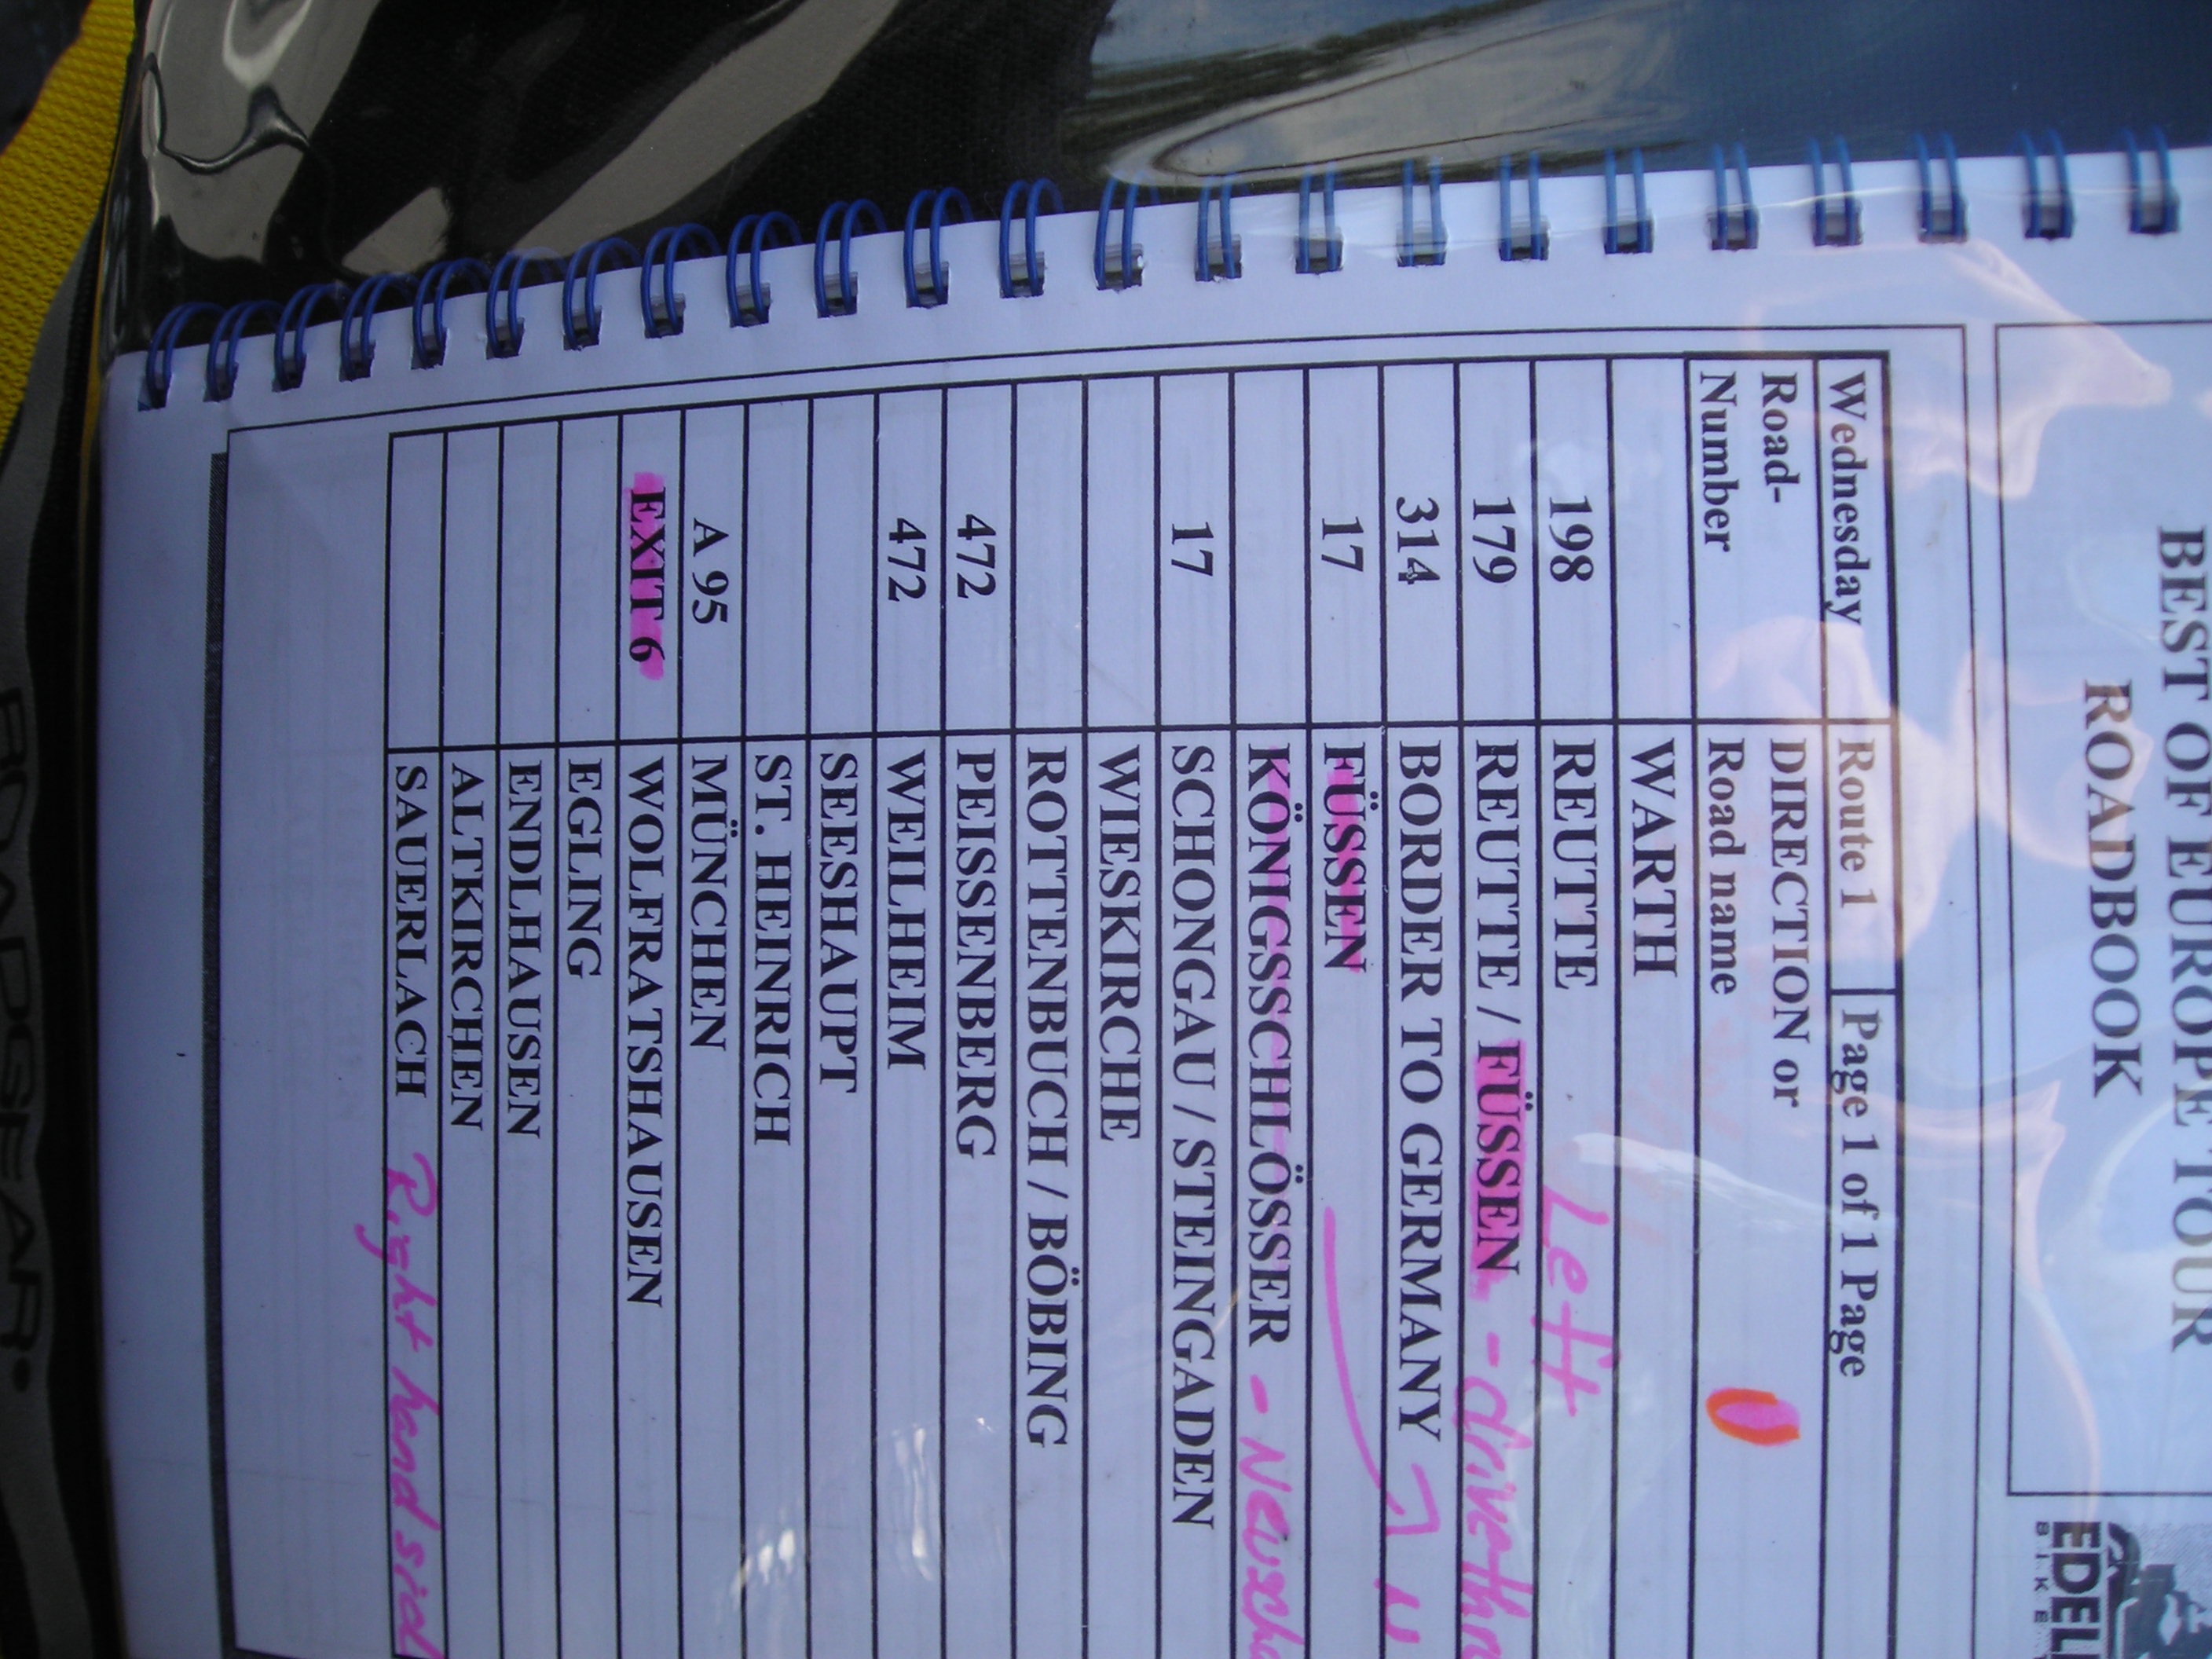 BEST OF EUROPE TOUR
ROADBOOK
EDEL
BIKE
Wednesday Route 1 Page 1 of 1 Page
Road- DIRECTION or
Number Road name
WARTH
Left
198 REUTTE
179 REUTTE / FÜSSEN - drive thr
314 BORDER TO GERMANY
17 FÜSSEN
KÖNIGSSCHLÖSSER - Neuscho
17 SCHONGAU / STEINGADEN
WIESKIRCHE
ROTTENBUCH / BÖBING
472 PEISSENBERG
472 WEILHEIM
SEESHAUPT
ST. HEINRICH
A 95 MÜNCHEN
EXIT 6 WOLFRATSHAUSEN
EGLING
ENDLHAUSEN
ALTKIRCHEN
SAUERLACH Right hand sid